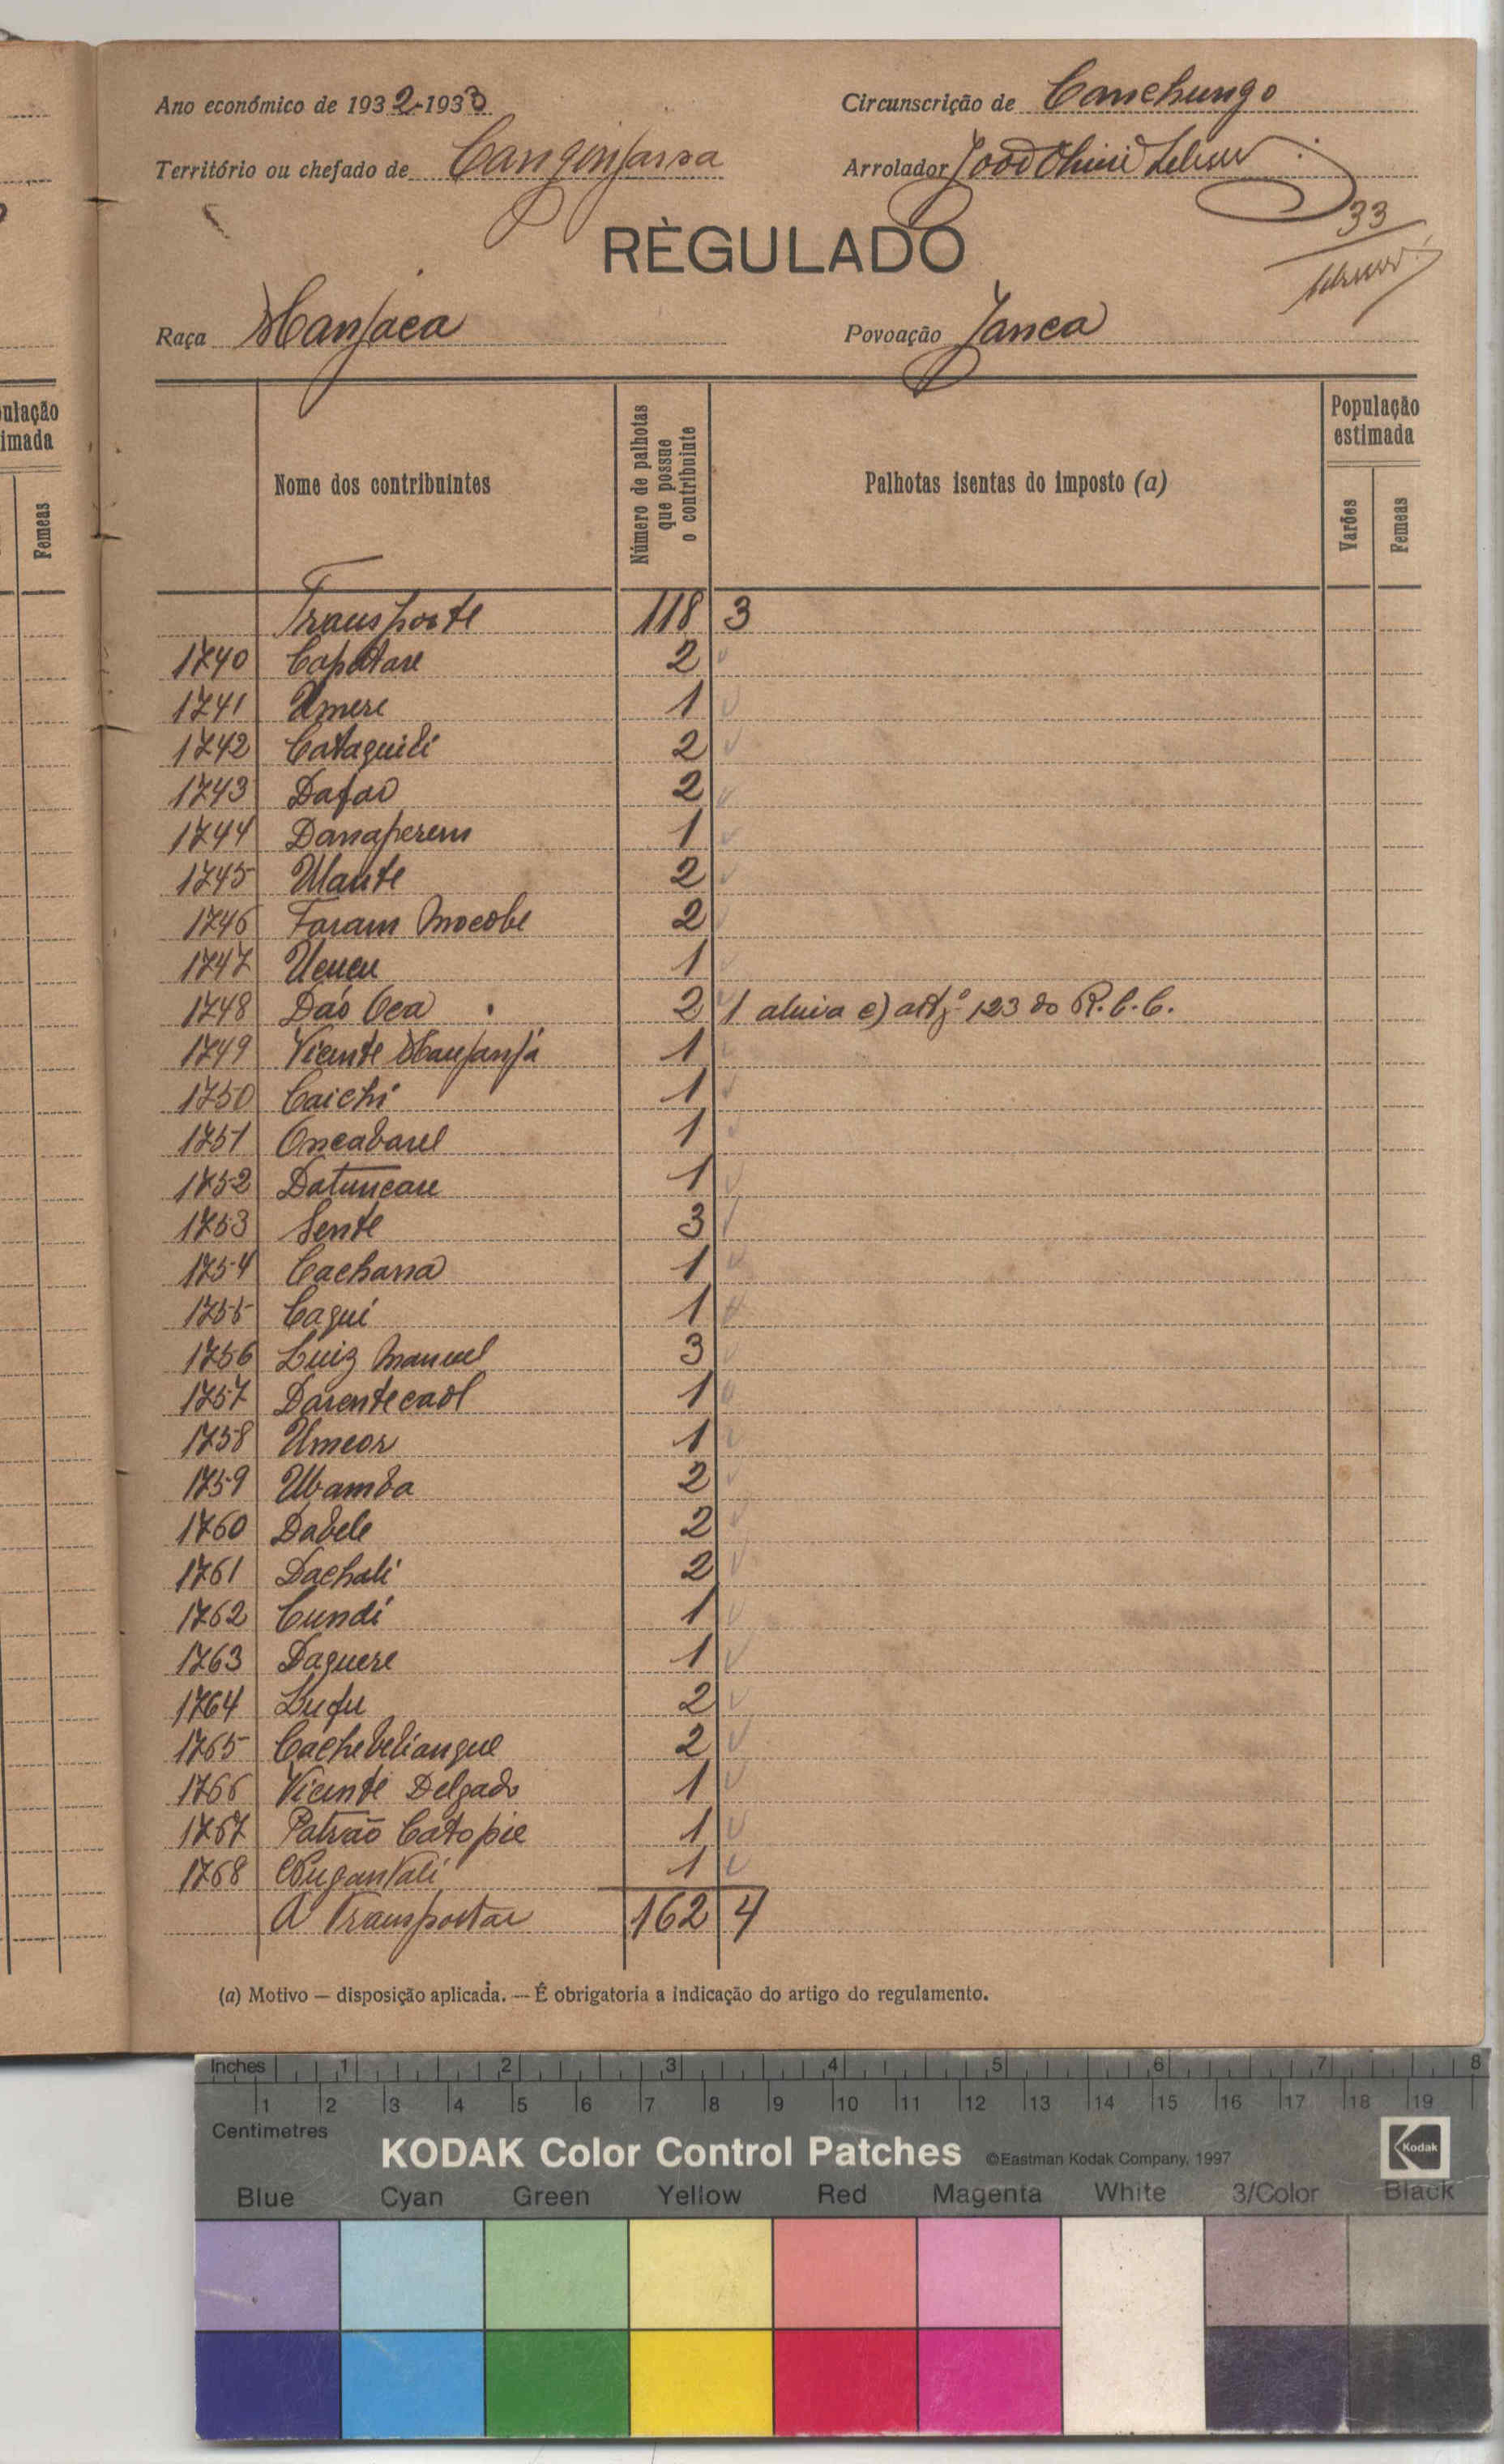 Ano económico de 1932-1933
Circunscrição de Canchungo
Território ou chefado de
Arrolador
33
RÈGULADO
Raça Manjaca
Povoação Janca
ulação
imada
Femeas
Nome dos contribuintes
Número de palhotas que possue o contribuinte
Palhotas isentas do imposto (a)
População estimada
Varões
Femeas
Transporte 118 3
1740 Capatase 2
1741 Umere 1
1742 Cataguili 2
1743 Dafao 2
1744 Danaperem 1
1745 Ulante 2
1746 Faram Mocobe 2
1747 Ucucu 1
1748 Dáo Oca 2 1 alinia e) artgº 123 do R.C.C.
1749 Vicente Manjanjá 1
1750 Caichi 1
1751 Oncabarel 1
1752 Datuncau 1
1753 Sente 3
1754 Cachana 1
1755 Cagui 1
1756 Luiz Manuel 3
1757 Darentecaol 1
1758 Umeor 1
1759 Ubamba 2
1760 Dabele 2
1761 Dachali 2
1762 Cundi 1
1763 Daguere 1
1764 Lufu 2
1765 Cachebeliangue 2
1766 Vicente Delgado 1
1767 Patrão Catopie 1
1768 1
A Transportar 162 4
(a) Motivo — disposição aplicada. — É obrigatoria a indicação do artigo do regulamento.
Inches 1 2 3 4 5 6 7 8
1 2 3 4 5 6 7 8 9 10 11 12 13 14 15 16 17 18 19
Centimetres
KODAK Color Control Patches ©Eastman Kodak Company, 1997 Kodak
Blue Cyan Green Yellow Red Magenta White 3/Color Black